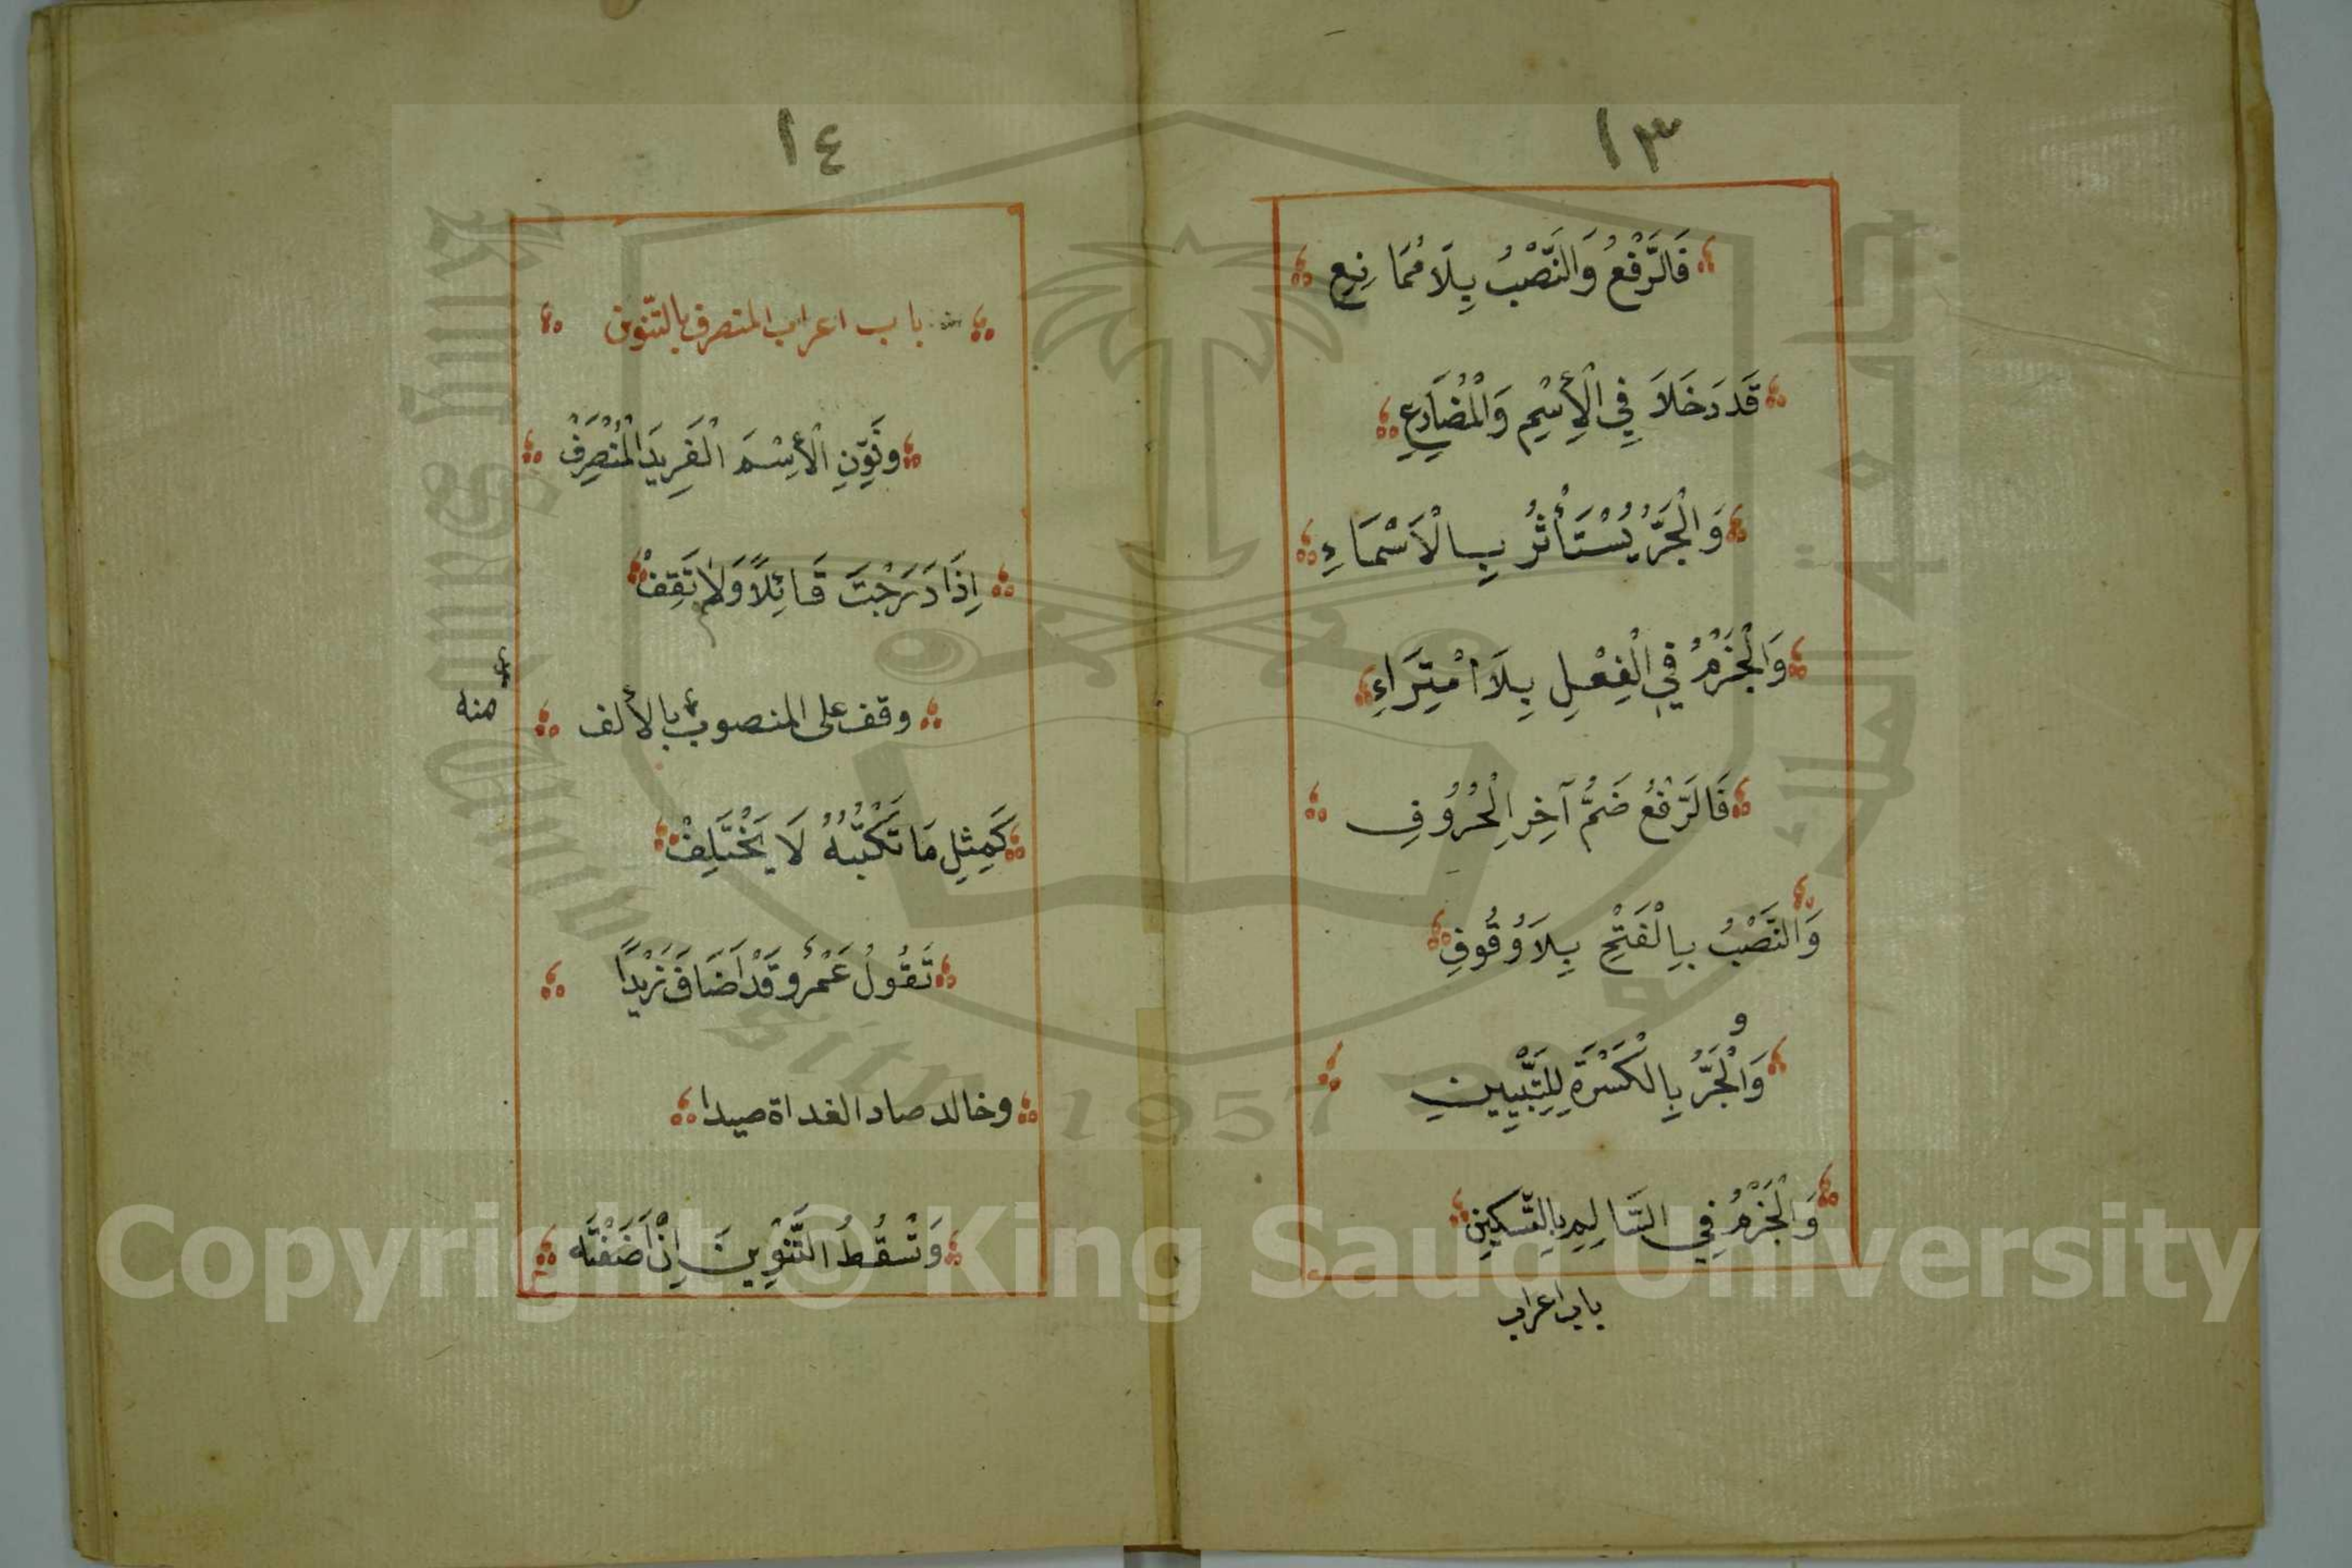 ١٣
فَالرَّفْعُ وَالنَّصْبُ بِلَا مُمَانِعِ
قَد دَخَلَا فِي الْإِسْمِ وَالْمُضَارِعِ
وَالْجَرُّ يُسْتَأْثَرُ بِالْاَسْمَاءِ
وَالْجَزْمُ فِي الْفِعْلِ بِلَا امْتِرَاءِ
فَالرَّفْعُ ضَمُّ آخِرِ الْحُرُوُفِ
وَالنَّصْبُ بِالْفَتْحِ بِلَا وُقُوفِ
و
وَالْجَرُّ بِالْكَسْرَةِ لِلتَّبْيِينِ
وَالْجَزْمُ فِي السَّالِمِ بِالتَّسْكِينِ
باب اعراب
١٤
باب اعراب المنصرف بالتّنوين
وَنَوِّنِ الْأِسْمَ الْفَرِيدَ الْمُنْصَرِفْ
اِذَا دَرَجْتَ قَائِلًا وَلَمْ تَقِفْ
وقف على المنصوب بالألف
منه
كَمِثْلِ مَا تَكْتُبُهُ لَا يَخْتَلِفْ
تَقُولُ عَمْرٌو قَدْ اَضَافَ زَيْدًا
وخالد صاد الغداة صيدا
وَتُسْقُطُ التَّنْوِينَ اِنْ اَضَفْتَه
Copyright © King Saud University
جامعة الملك سعود
King Saud University
1957